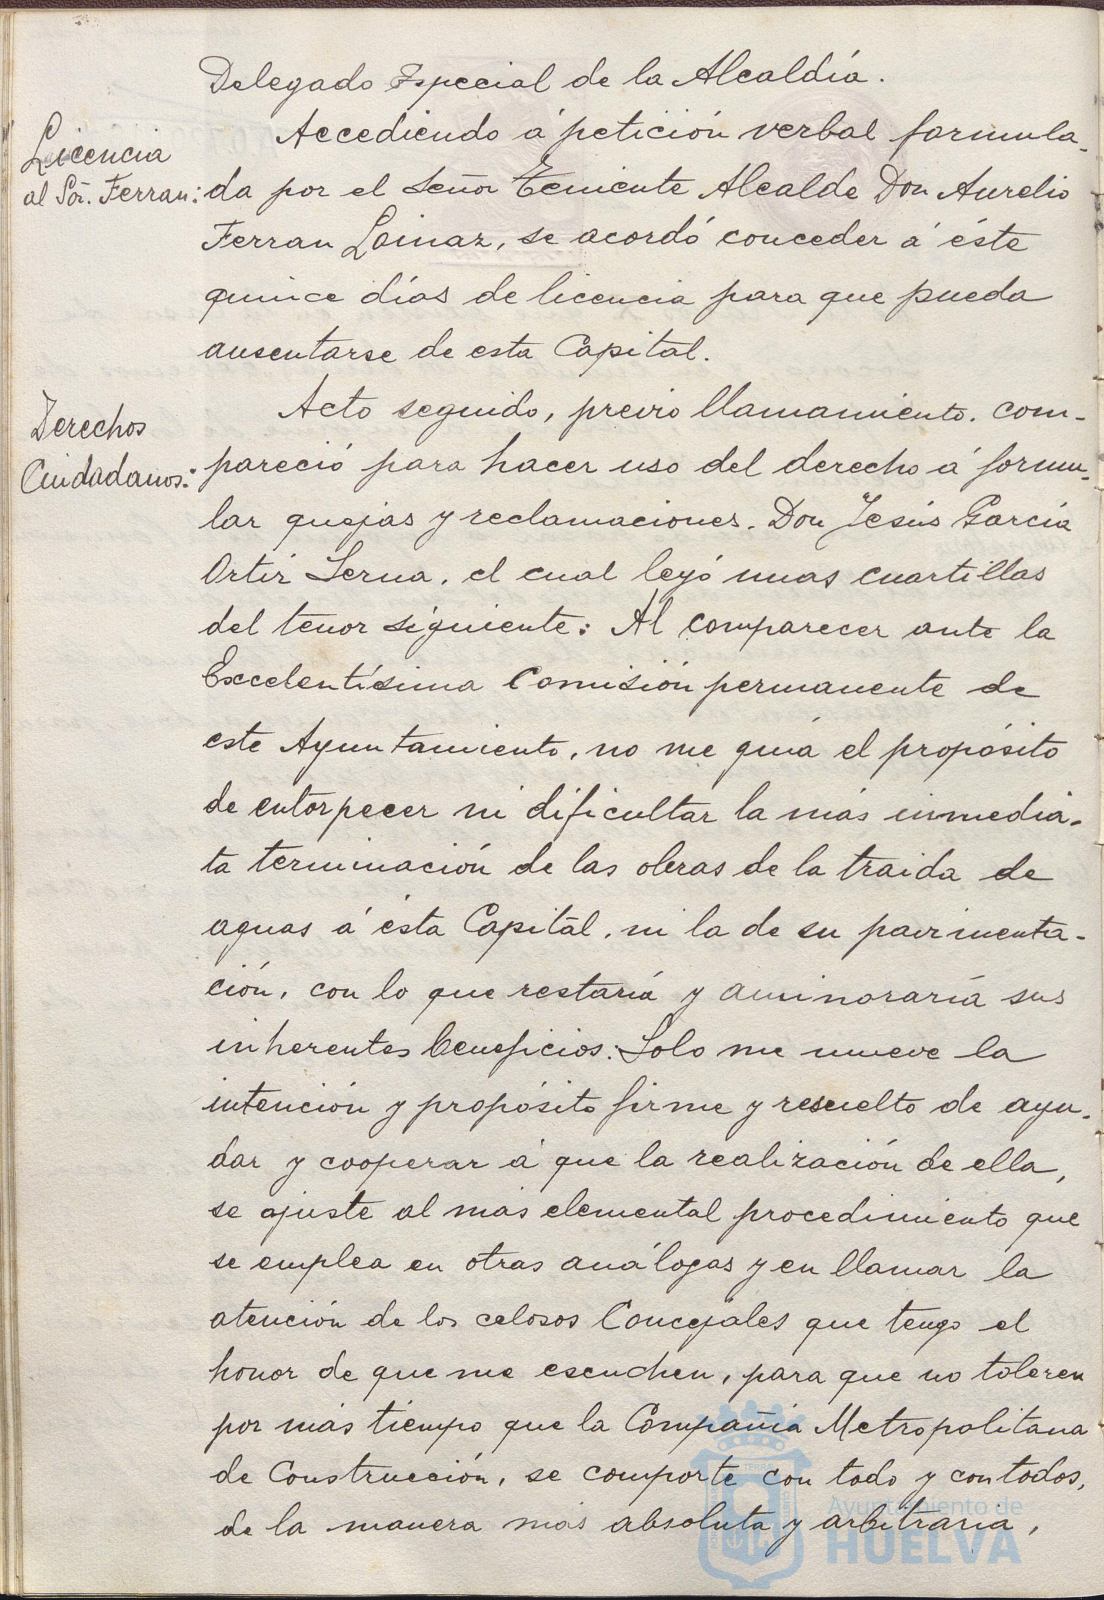 Delegado Especial de la Alcaldía.
Licencia
al Sr. Ferran:
Accediendo á petición verbal formula-
da por el Señor Teniente Alcalde Don Aurelio
Ferran Loinaz, se acordó conceder á éste
quince días de licencia para que pueda
ausentarse de esta Capital.
Derechos
Ciudadanos:
Acto seguido, previo llamamiento. com-
pareció para hacer uso del derecho á formu-
lar quejas y reclamaciones. Don Jesús García
Ortiz Serna, el cual leyó unas cuartillas
del tenor siguiente: Al comparecer ante la
Excelentísima Comisión permanente de
este Ayuntamiento, no me guia el propósito
de entorpecer ni dificultar la más inmedia-
ta terminación de las obras de la traida de
aguas á ésta Capital, ni la de su pavimenta-
ción, con lo que restaría y aminoraría sus
inherentes beneficios: Solo me mueve la
intención y propósito firme y resuelto de ayu-
dar y cooperar á que la realización de ella,
se ajuste al mas elemental procedimiento que
se emplea en otras análogas y en llamar la
atención de los celosos Concejales que tengo el
honor de que me escuchen, para que no toleren
por más tiempo que la Compañía Metropolitana
de Construcción, se comporte con todo y con todos,
de la manera mas absoluta y arbitraria,
Ayuntamiento de
HUELVA